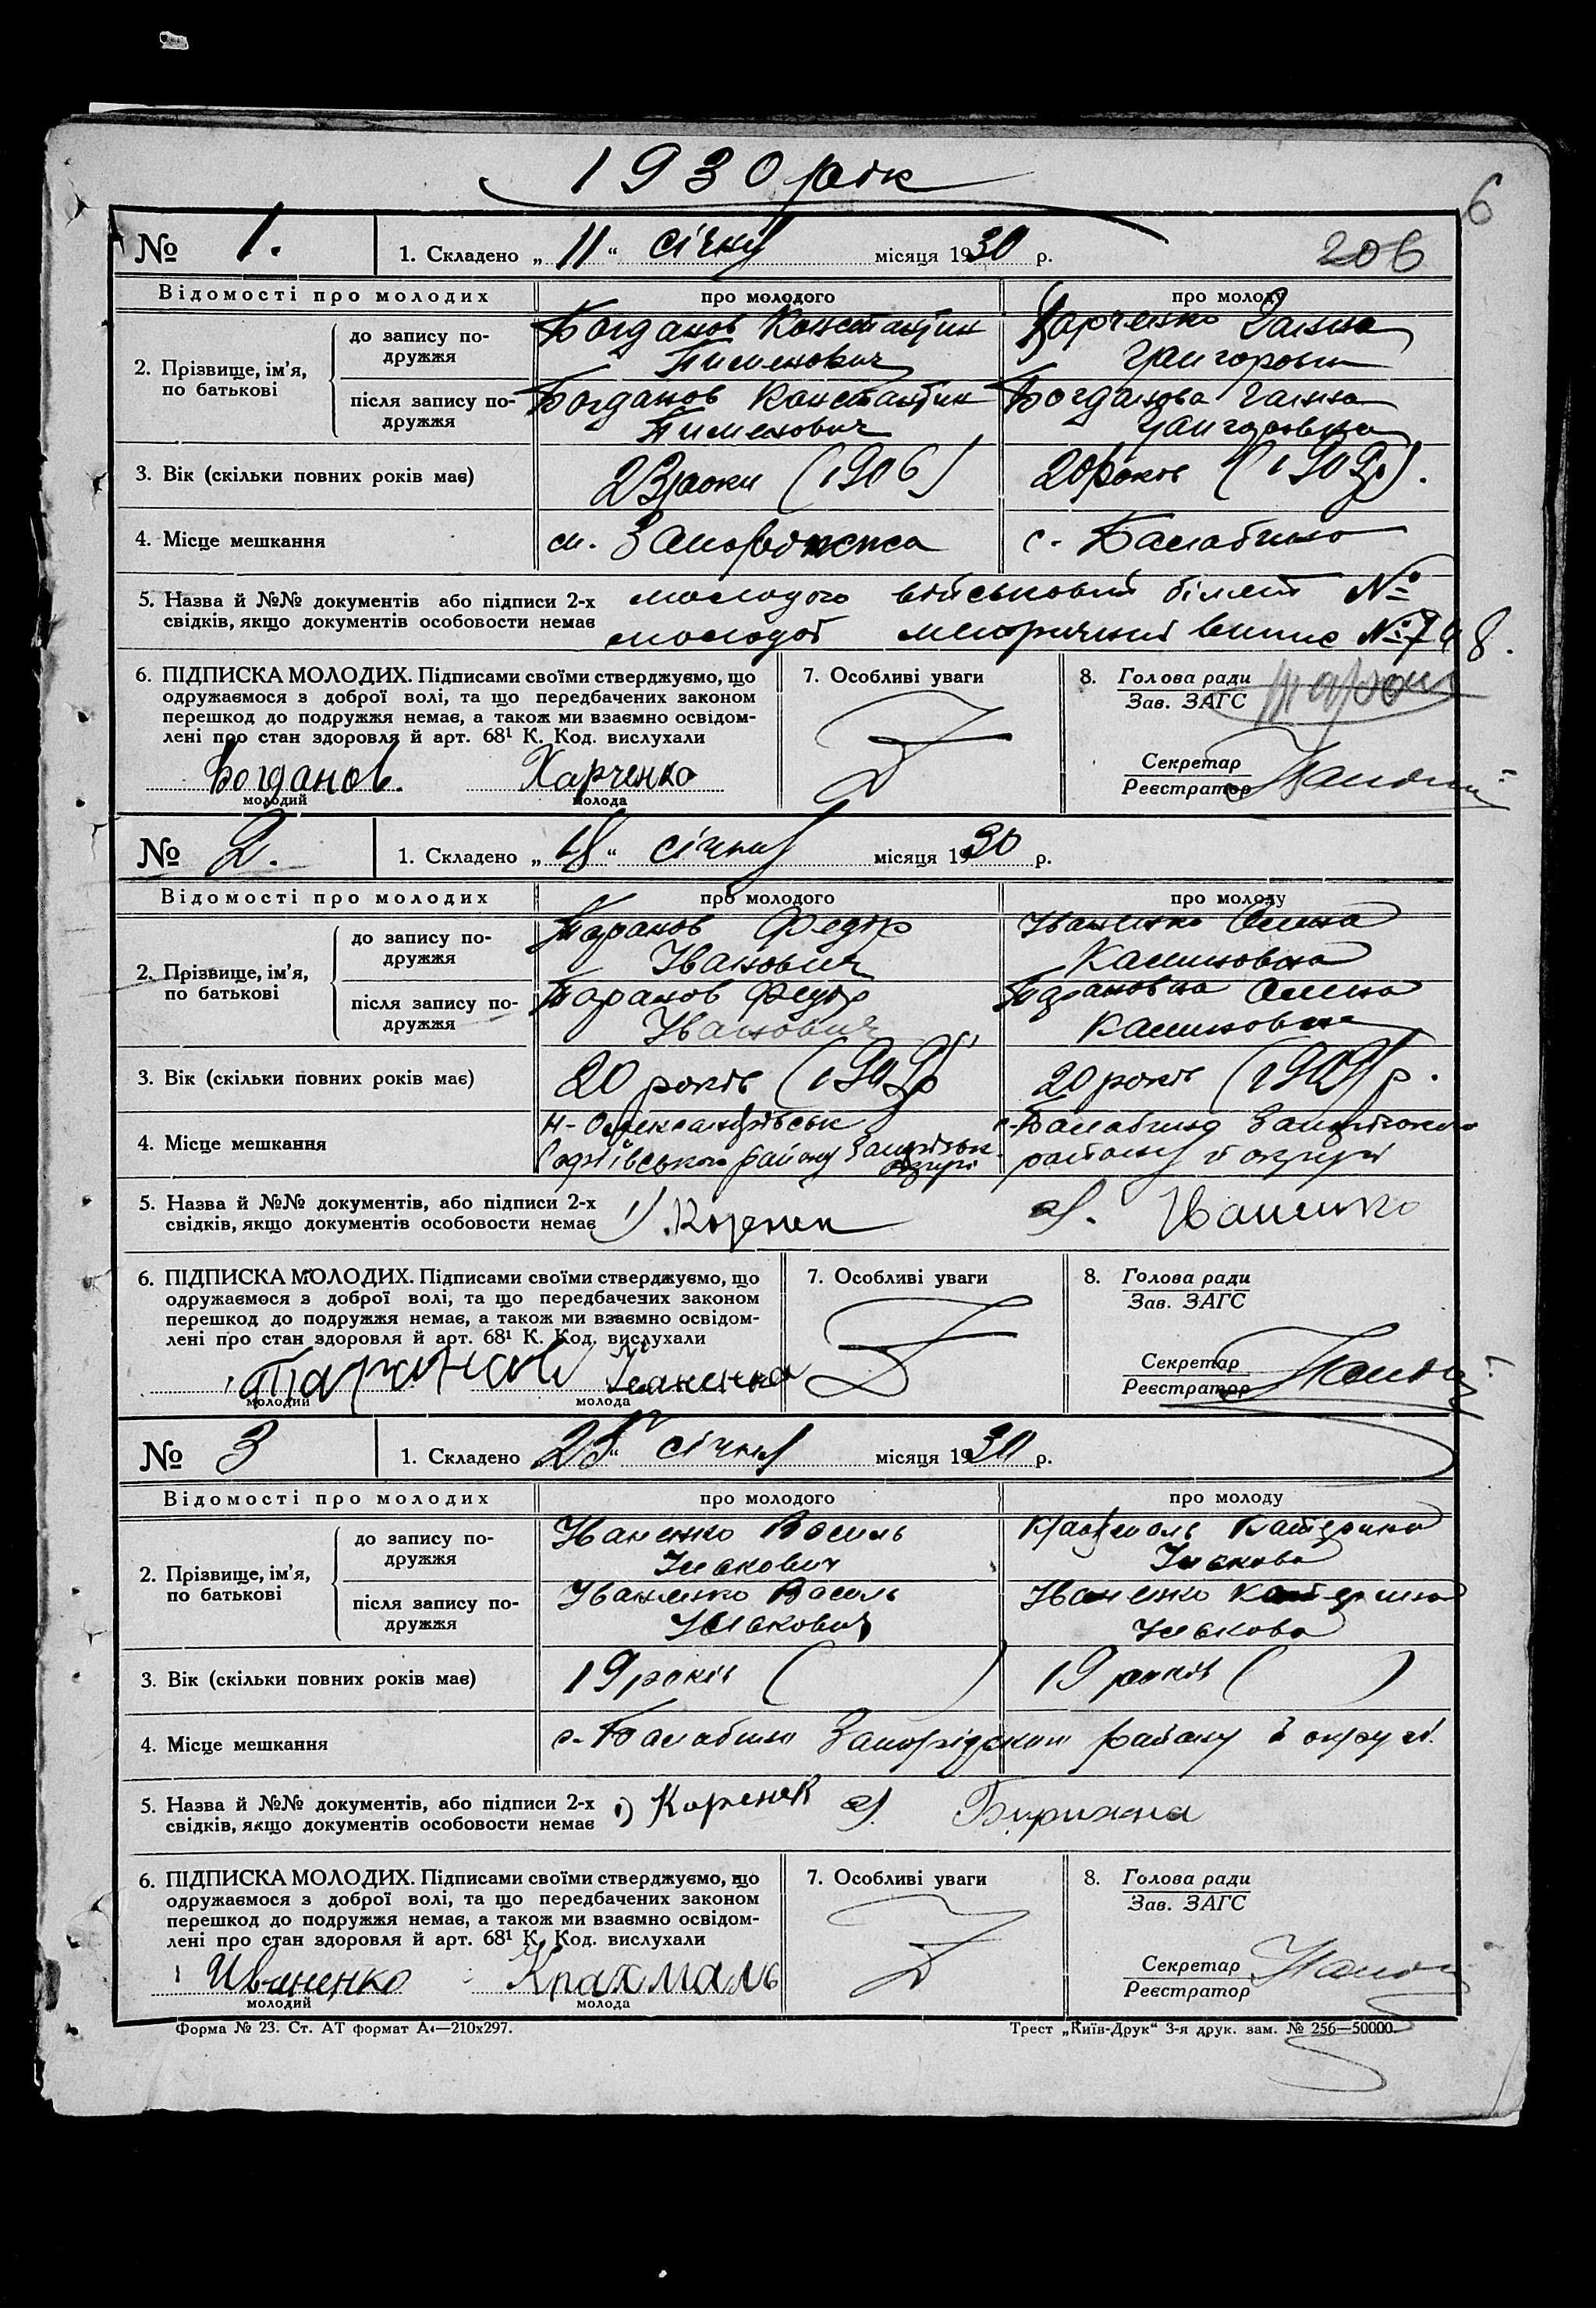 1930 рік
6
№ 1. 1. Складено „ 11 “ січня місяця 1930 р. 206
Відомості про молодих про молодого про молоду
2. Прізвище, ім'я, по батькові
до запису подружжя
Богданов Константин
Пименович
Харченко Ганна
Григоровна
після запису подружжя
Богданов Константин
Пименович
Богданова Ганна
Григоровна
3. Вік (скільки повних років має) 23 роки (1906) 20 років (1909р).
4. Місце мешкання м. Запоріжжя с. Балабино
5. Назва й №№ документів або підписи 2-х молодого військовий білет №
свідків, якщо документів особовости немає молодої метричний випис № 748.
6. ПІДПИСКА МОЛОДИХ. Підписами своїми стверджуємо, що
одружаємося з доброї волі, та що передбачених законом
перешкод до подружжя немає, а також ми взаємно освідом-
лені про стан здоровля й арт. 68¹ К. Код. вислухали
Богданов. Харченко
молодий молода
7. Особливі уваги
8. Голова ради
Зав. ЗАГС
Секретар
Реєстратор
№ 2. 1. Складено „ 18 “ січня місяця 1930 р.
Відомості про молодих про молодого про молоду
2. Прізвище, ім'я, по батькові
до запису подружжя
Таранов Федір
Іванович
Іваненко Олена
Калиновна
після запису подружжя
Таранов Федір
Іванович
Таранова Олена
Калиновна
3. Вік (скільки повних років має) 20 років (1909)р 20 років (1909) р.
4. Місце мешкання
Н-Олександрівськ
району Запорізьк. округи
с. Балабино Запорізького
району й округи
5. Назва й №№ документів, або підписи 2-х
свідків, якщо документів особовости немає 1) Коренек 2). Іваненко
6. ПІДПИСКА МОЛОДИХ. Підписами своїми стверджуємо, що
одружаємося з доброї волі, та що передбачених законом
перешкод до подружжя немає, а також ми взаємно освідом-
лені про стан здоровля й арт. 68¹ К. Код. вислухали
Таранов Іваненко
молодий молода
7. Особливі уваги
8. Голова ради
Зав. ЗАГС
Секретар
Реєстратор
№ 3 1. Складено 25 “ січня місяця 1930 р.
Відомості про молодих про молодого про молоду
2. Прізвище, ім'я, по батькові
до запису подружжя
Іваненко Василь
Ількович
Крахмаль Катерина
Ількова
після запису подружжя
Іваненко Василь
Ількович
Іваненко Катерина
Ількова
3. Вік (скільки повних років має) 19 років ( ) 19 років ( )
4. Місце мешкання с. Балабино Запорізького району й округи.
5. Назва й №№ документів, або підписи 2-х
свідків, якщо документів особовости немає 1) Коренек 2).
6. ПІДПИСКА МОЛОДИХ. Підписами своїми стверджуємо, що
одружаємося з доброї волі, та що передбачених законом
перешкод до подружжя немає, а також ми взаємно освідом-
лені про стан здоровля й арт. 68¹ К. Код. вислухали
Иваненко Крахмаль
молодий молода
7. Особливі уваги
8. Голова ради
Зав. ЗАГС
Секретар
Реєстратор
Форма № 23. Ст. АТ формат А₄—210х297. Трест „Київ-Друк“ 3-я друк. зам. № 256—50000.